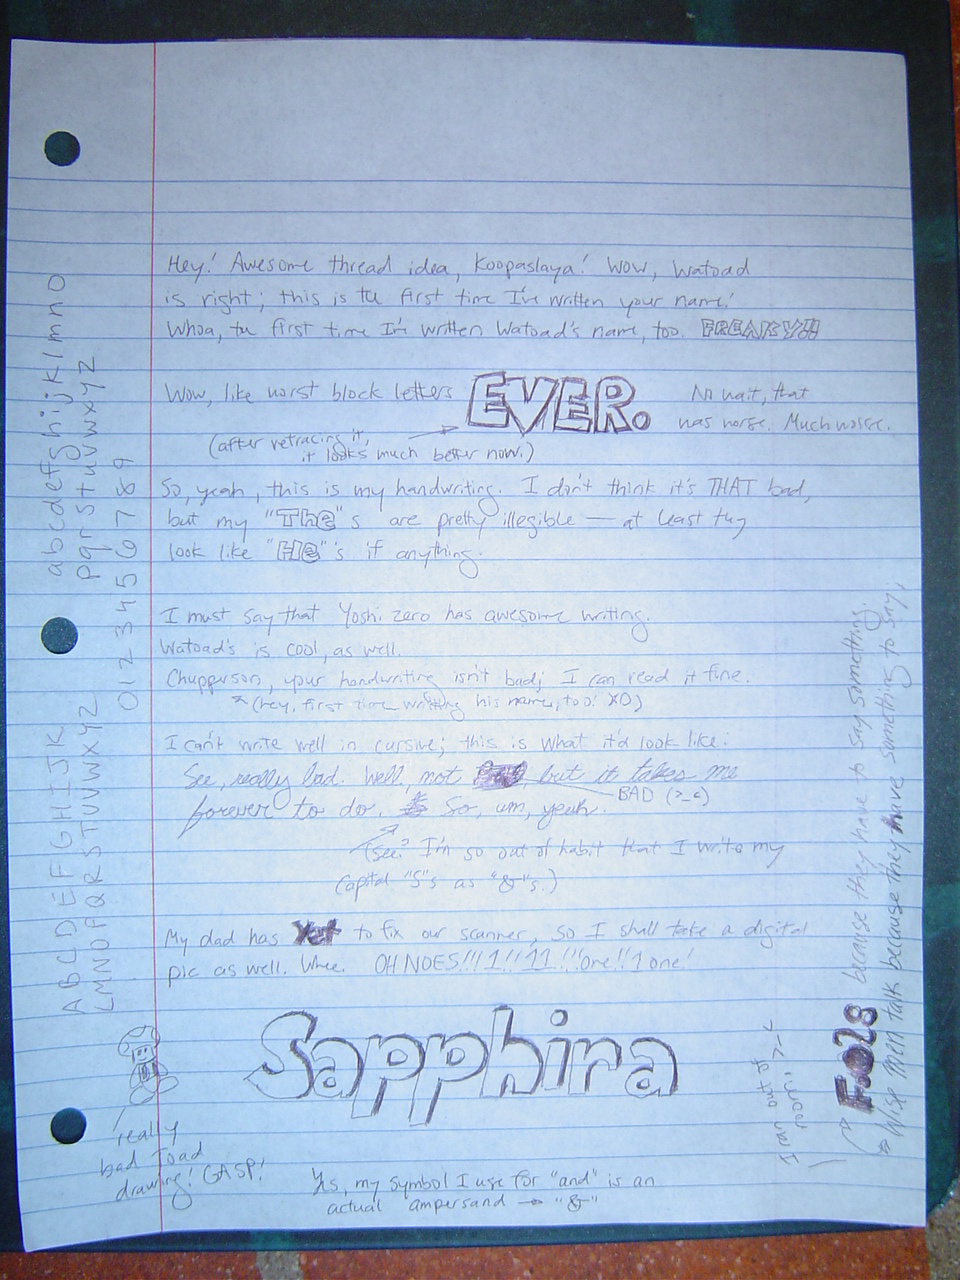 Hey! Awesome thread idea, Koopaslaya! Wow, Watoad
is right; this is the first time I've written your name!
Whoa, the first time I've written Watoad's name, too. FREAKY!!
Wow, like worst block letters EVER. No wait, that
was worse. Much worse.
(after retracing it,
it looks much better now.)
So, yeah, this is my handwriting. I don't think it's THAT bad,
but my "The"s are pretty illegible — at least they
look like "He"'s if anything.
I must say that Yoshi zero has awesome writing.
Watoad's is cool, as well.
Chupperson, your handwriting isn't bad; I can read it fine.
*(hey, first time writing his name, too! XD)
I can't write well in cursive; this is what it'd look like:
See, really bad. Well, not , but it takes me
BAD (>_<)
forever to do. So, um, yeah.
(See? I'm so out of habit that I write my
capital "S"s as "&"s.)
My dad has yet to fix our scanner, so I shall take a digital
pic as well. Whee. OH NOES!!!1!!11!!one!!1one!
Sapphira
really
bad Toad
drawing! GASP!
Yes, my symbol I use for "and" is an
actual ampersand → "&"
abcdefghijklmno
pqrstuvwxyz
0123456789
ABCDEFGHIJK
LMNOPQRSTUVWXYZ
I ran out of
room! >_<
Fools because they have to say something.
Wise men talk because they have something to say;